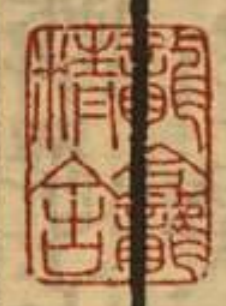 龍龕
精舍